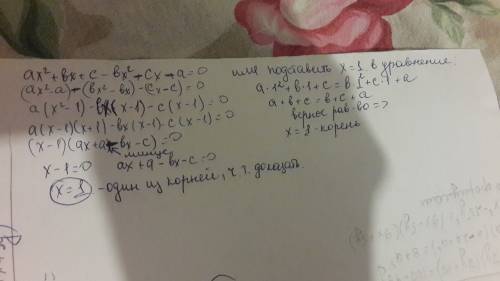 ax² + bx + c - bx² - cx - a = 0
(ax² - a) - (bx² - bx) - (cx - c) = 0
a(x² - 1) - bx(x - 1) - c(x - 1) = 0
a(x - 1)(x + 1) - bx(x - 1) - c(x - 1) = 0
(x - 1)(ax + a - bx - c) = 0
лишнее
x - 1 = 0 ax + a - bx - c = 0
x = 1 - один из корней, ч.т. доказать.
или подставить x = 1 в уравнение.
a · 1² + b · 1 + c = b · 1² + c · 1 + a
a + b + c = b + c + a
верное рав-во =>
x = 1 - корень